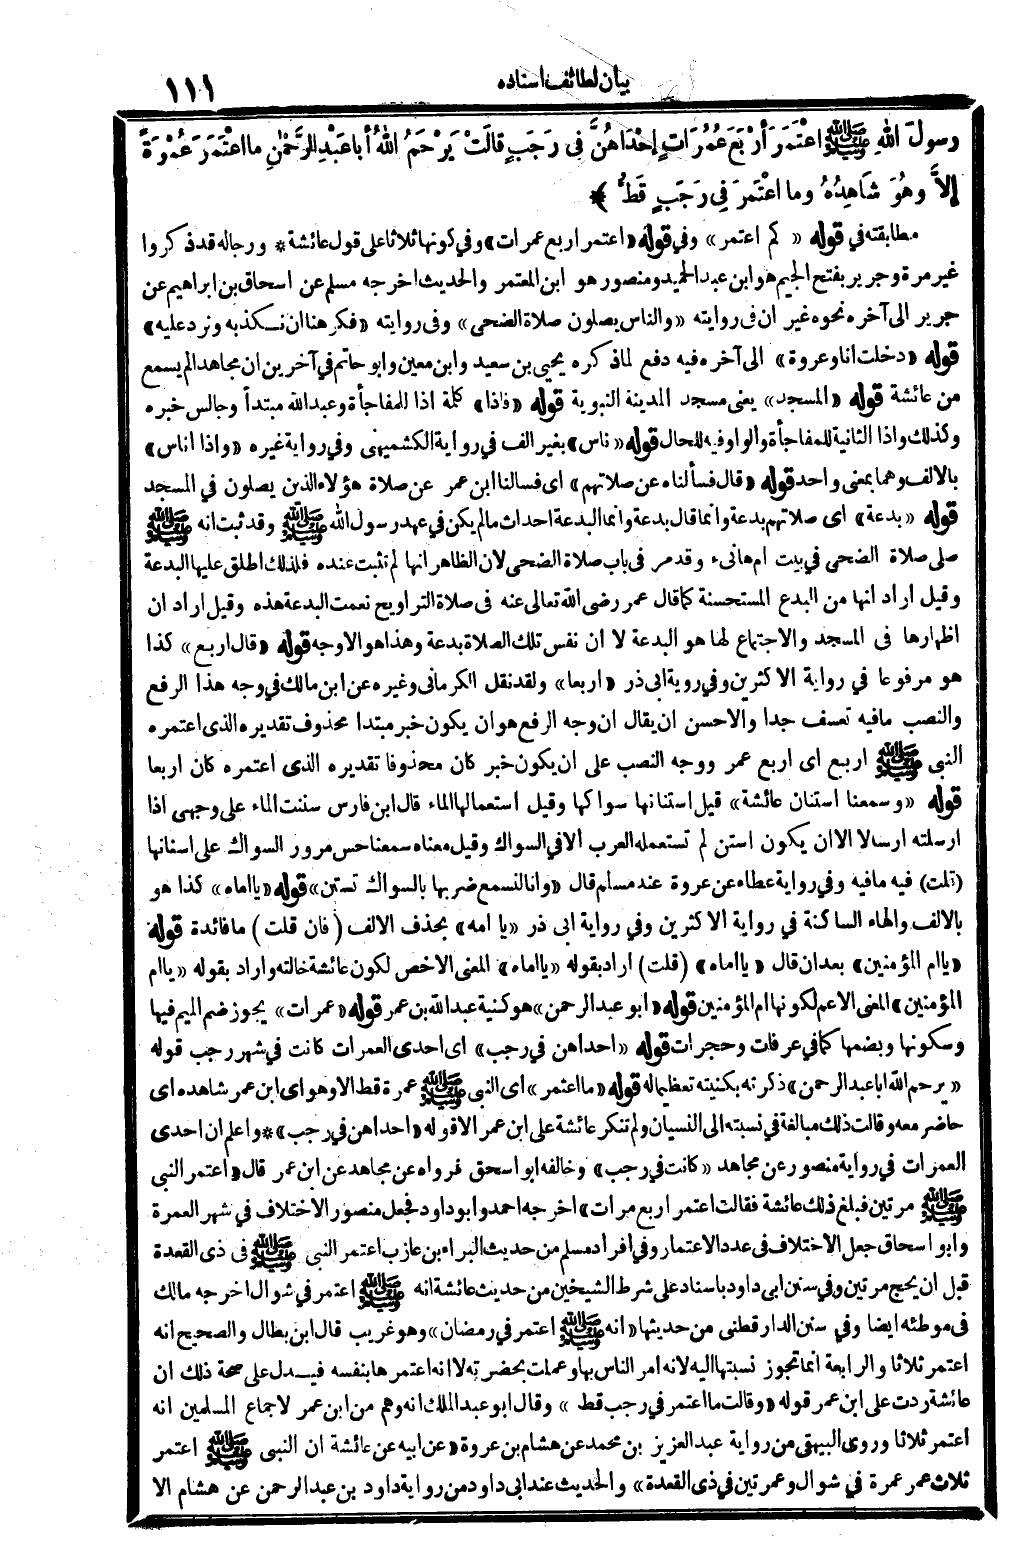 بيان لطائف اسناده
١١١
رسولَ اللهِ ﷺ اعْتَمَرَ أرْبَعَ عُمُرَاتٍ إحْدَاهُنَّ فِي رَجَبٍ قالَتْ يَرْحَمُ اللهُ أباعَبْدِ الرَّحْمٰنِ مااعْتَمَرَ عُمْرَةً
إلاَّ وهُوَ شَاهِدُهُ وما اعْتَمَرَ فِي رَجَبٍ قَطُّ ﴾
مطابقته في قوله « كم اعتمر » وفي قوله «اعتمر اربع عمرات» وفي كونها ثلاثا على قول عائشة * ورجاله قد ذكروا
غير مرة وجرير بفتح الجيم هو ابن عبد الحميد ومنصور هو ابن المعتمر والحديث اخرجه مسلم عن اسحاق بن ابراهيم عن
جرير الى آخره نحوه غير ان في روايته «والناس يصلون صلاة الضحى» وفي روايته «فكرهنا ان نكذبه ونرد عليه»
قوله «دخلت انا وعروة» الى آخره فيه دفع لما ذكره يحيى بن سعيد وابن معين وابو حاتم في آخرين ان مجاهدا لم يسمع
من عائشة قوله «المسجد» يعنى مسجد المدينة النبوية قوله «فاذا» كلمة اذا للمفاجأة وعبد الله مبتدأ وجالس خبره
وكذلك واذا الثانية للمفاجأة والواو فيه للحال قوله «ناس» بغير الف في رواية الكشميهنى وفي رواية غيره «واذا اناس»
بالالف وهما بمعنى واحد قوله «قال فسألناه عن صلاتهم» اى فسالنا ابن عمر عن صلاة هؤلاء الذين يصلون في المسجد
قوله «بدعة» اى صلاتهم بدعة وانما قال بدعة وانما البدعة احداث مالم يكن في عهد رسول الله ﷺ وقد ثبت انه ﷺ
صلى صلاة الضحى في بيت ام هانىء وقد مر في باب صلاة الضحى لان الظاهر انها لم تثبت عنده فلذلك اطلق عليها البدعة
وقيل اراد انها من البدع المستحسنة كما قال عمر رضى الله تعالى عنه فى صلاة التراويح نعمت البدعة هذه وقيل اراد ان
اظهارها فى المسجد والاجتماع لها هو البدعة لا ان نفس تلك الصلاة بدعة وهذا هو الاوجه قوله «قال اربع» كذا
هو مرفوعا في رواية الاكثرين وفي روية ابى ذر «اربعا» ولقد نقل الكرمانى وغيره عن ابن مالك في وجه هذا الرفع
والنصب مافيه تعسف جدا والاحسن ان يقال ان وجه الرفع هو ان يكون خبر مبتدا محذوف تقديره الذى اعتمره
النبى ﷺ اربع اى اربع عمر ووجه النصب على ان يكون خبر كان محذوفا تقديره الذى اعتمره كان اربعا
قوله «وسمعنا استنان عائشة» قيل استنانها سواكها وقيل استعمالها الماء قال ابن فارس سننت الماء على وجهى اذا
ارسلته ارسالا الا ان يكون استن لم تستعمله العرب الا في السواك وقيل معناه سمعنا حس مرور السواك على اسنانها
(قلت) فيه مافيه وفي رواية عطاء عن عروة عند مسلم قال «وانا لنسمع ضربها بالسواك تستن» قوله «يااماه» كذا هو
بالالف والهاء الساكنة في رواية الاكثرين وفي رواية ابى ذر «يا امه» بحذف الالف (فان قلت) مافائدة قوله
«ياام المؤمنين» بعد ان قال «يااماه» (قلت) اراد بقوله «يااماه» المعنى الاخص لكون عائشة خالته واراد بقوله «ياام
المؤمنين» المعنى الاعم لكونها ام المؤمنين قوله «ابو عبد الرحمن» هو كنية عبد الله بن عمر قوله «عمرات» يجوز ضم الميم فيها
وسكونها وبضمها كما في عرفات وحجرات قوله «احداهن في رجب» اى احدى العمرات كانت في شهر رجب قوله
«يرحم الله اباعبد الرحمن» ذكرته بكنيته تعظيما له قوله «مااعتمر» اى النبى ﷺ عمرة قط الا وهو اى ابن عمر شاهده اى
حاضر معه وقالت ذلك مبالغة في نسبته الى النسيان ولم تنكر عائشة على ابن عمر الا قوله «احداهن في رجب» * واعلم ان احدى
العمرات في رواية منصور عن مجاهد «كانت في رجب» وخالفه ابو اسحق فرواه عن مجاهد عن ابن عمر قال «اعتمر النبى
ﷺ مرتين فبلغ ذلك عائشة فقالت اعتمر اربع مرات» اخرجه احمد وابو داود فجعل منصور الاختلاف في شهر العمرة
وابو اسحاق جعل الاختلاف في عدد الاعتمار وفي افراد مسلم من حديث البراء بن عازب اعتمر النبى ﷺ فى ذى القعدة
قبل ان يحج مرتين وفي سنن ابى داود باسناد على شرط الشيخين من حديث عائشة انه ﷺ اعتمر في شوال اخرجه مالك
فى موطئه ايضا وفي سنن الدارقطنى من حديثها «انه ﷺ اعتمر في رمضان» وهو غريب قال ابن بطال والصحيح انه
اعتمر ثلاثا والرابعة انما تجوز نسبتها اليه لانه امر الناس بها وعملت بحضرته لا انه اعتمرها بنفسه فيدل على صحة ذلك ان
عائشة ردت على ابن عمر قوله «وقالت مااعتمر في رجب قط» وقال ابو عبد الملك انه وهم من ابن عمر لاجماع المسلمين انه
اعتمر ثلاثا وروى البيهقى من رواية عبد العزيز بن محمد عن هشام بن عروة «عن ابيه عن عائشة ان النبى ﷺ اعتمر
ثلاث عمر عمرة في شوال وعمرتين في ذى القعدة» والحديث عند ابى داود من رواية داود بن عبد الرحمن عن هشام الا